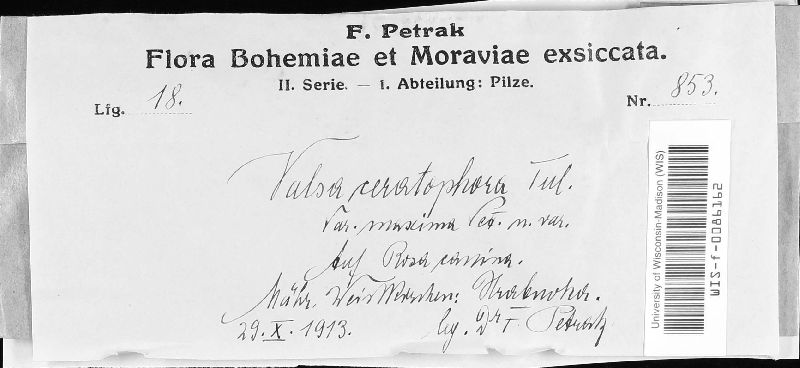 F. Petrak
Flora Bohemiae et Moraviae exsiccata.
II. Serie. — 1. Abteilung: Pilze.
Lfg. 18.
Nr. 853.
Valsa ceratophora Tul.
Var. maxima Pet. n. var.
Auf Rosa canina.
Mähr. Weisskirchen: Hrabuvka.
29. X. 1913.
lg. Dr F. Petrak
University of Wisconsin-Madison (WIS)
WIS-f-0086162